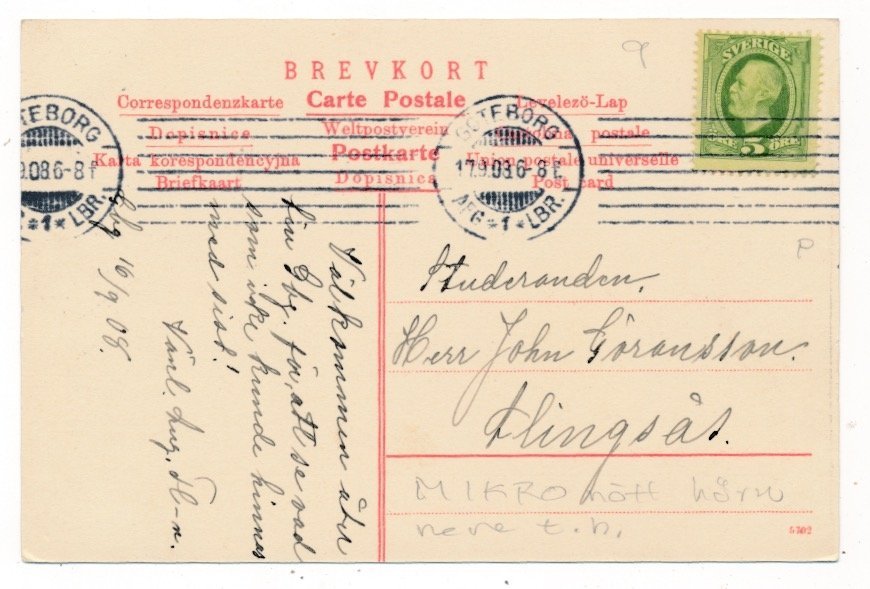 BREVKORT
Correspondenzkarte Carte Postale Levelezö-Lap
Dopisnice Weltpostverein postale
Karta korespondencyjna Postkarte Union postale universelle
Briefkaart Dopisnica Post card
SVERIGE
5 ÖRE
GÖTEBORG
17.9.08.6-8 F
AFG *1* LBR.
EBORG
9.08.6-8 F
*1* LBR.
Gbg 16/9 08.
Välkommen åter
Gbg. för att se vad
som icke kunde hinnas
med sist!
Vänl.
Studeranden,
Herr John Göransson.
Alingsås.
MIKRO nött hörn
nere t.h.
5702